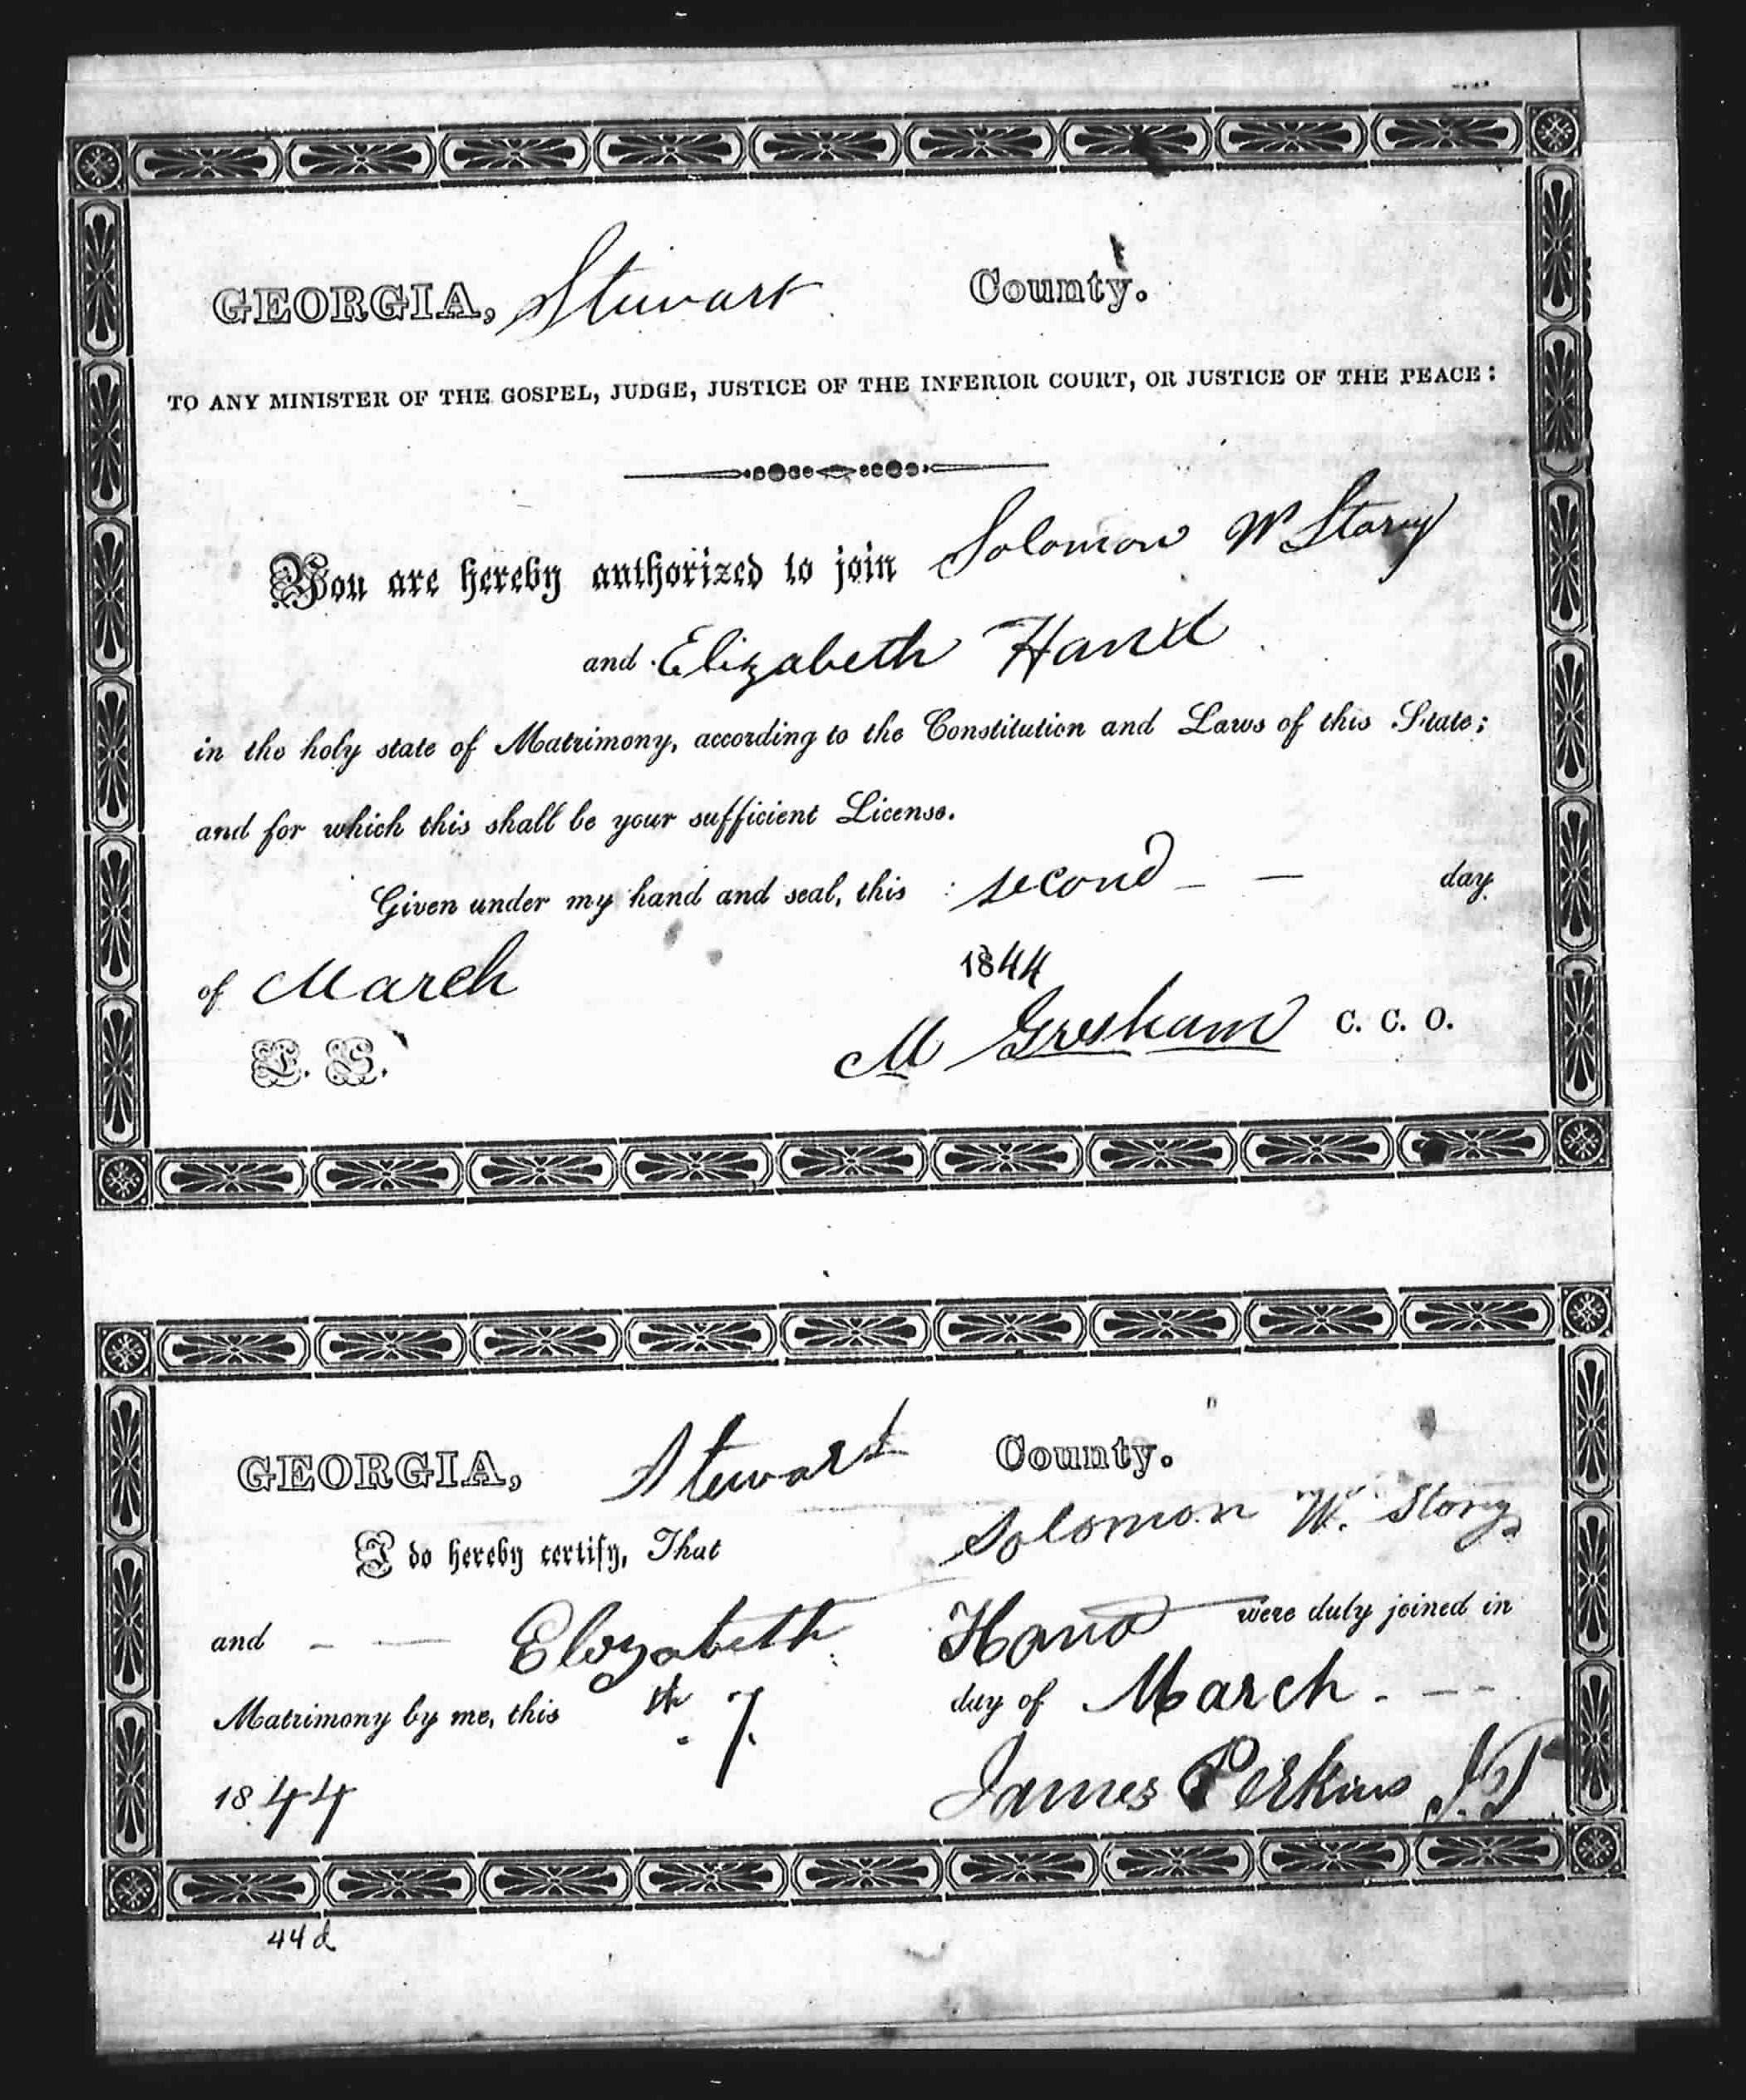 GEORGIA, Stewart County.
TO ANY MINISTER OF THE GOSPEL, JUDGE, JUSTICE OF THE INFERIOR COURT, OR JUSTICE OF THE PEACE:
You are hereby authorized to join Solomon W Story
and Elizabeth Hand
in the holy state of Matrimony, according to the Constitution and Laws of this State;
and for which this shall be your sufficient License.
Given under my hand and seal, this second - - day
of March 1844
L. S. M Gresham C. C. O.
GEORGIA, Stewart County.
I do hereby certify, That Solomon W. Story
and - - Elizabeth Hand were duly joined in
Matrimony by me, this th 7 day of March - - -
1844 James Perkins J.P.
44 d